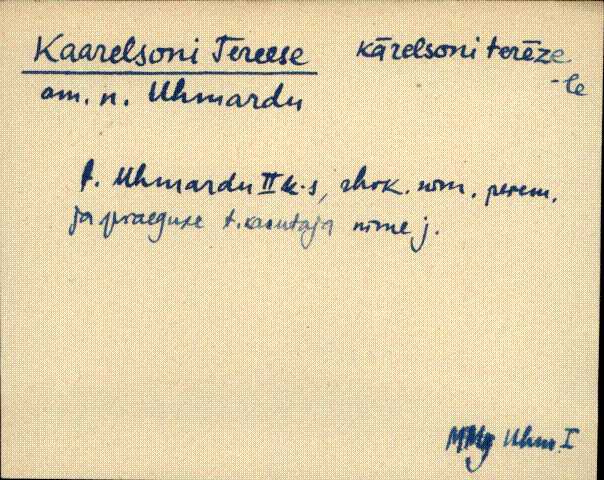 Kaarelsoni Tereese kārelsoni terēze
-le
am. n. Uhmardu
t. Uhmardu II k-s, nim. perem.
ja praeguse t. kasutaja nime j.
MMg Uhm. I